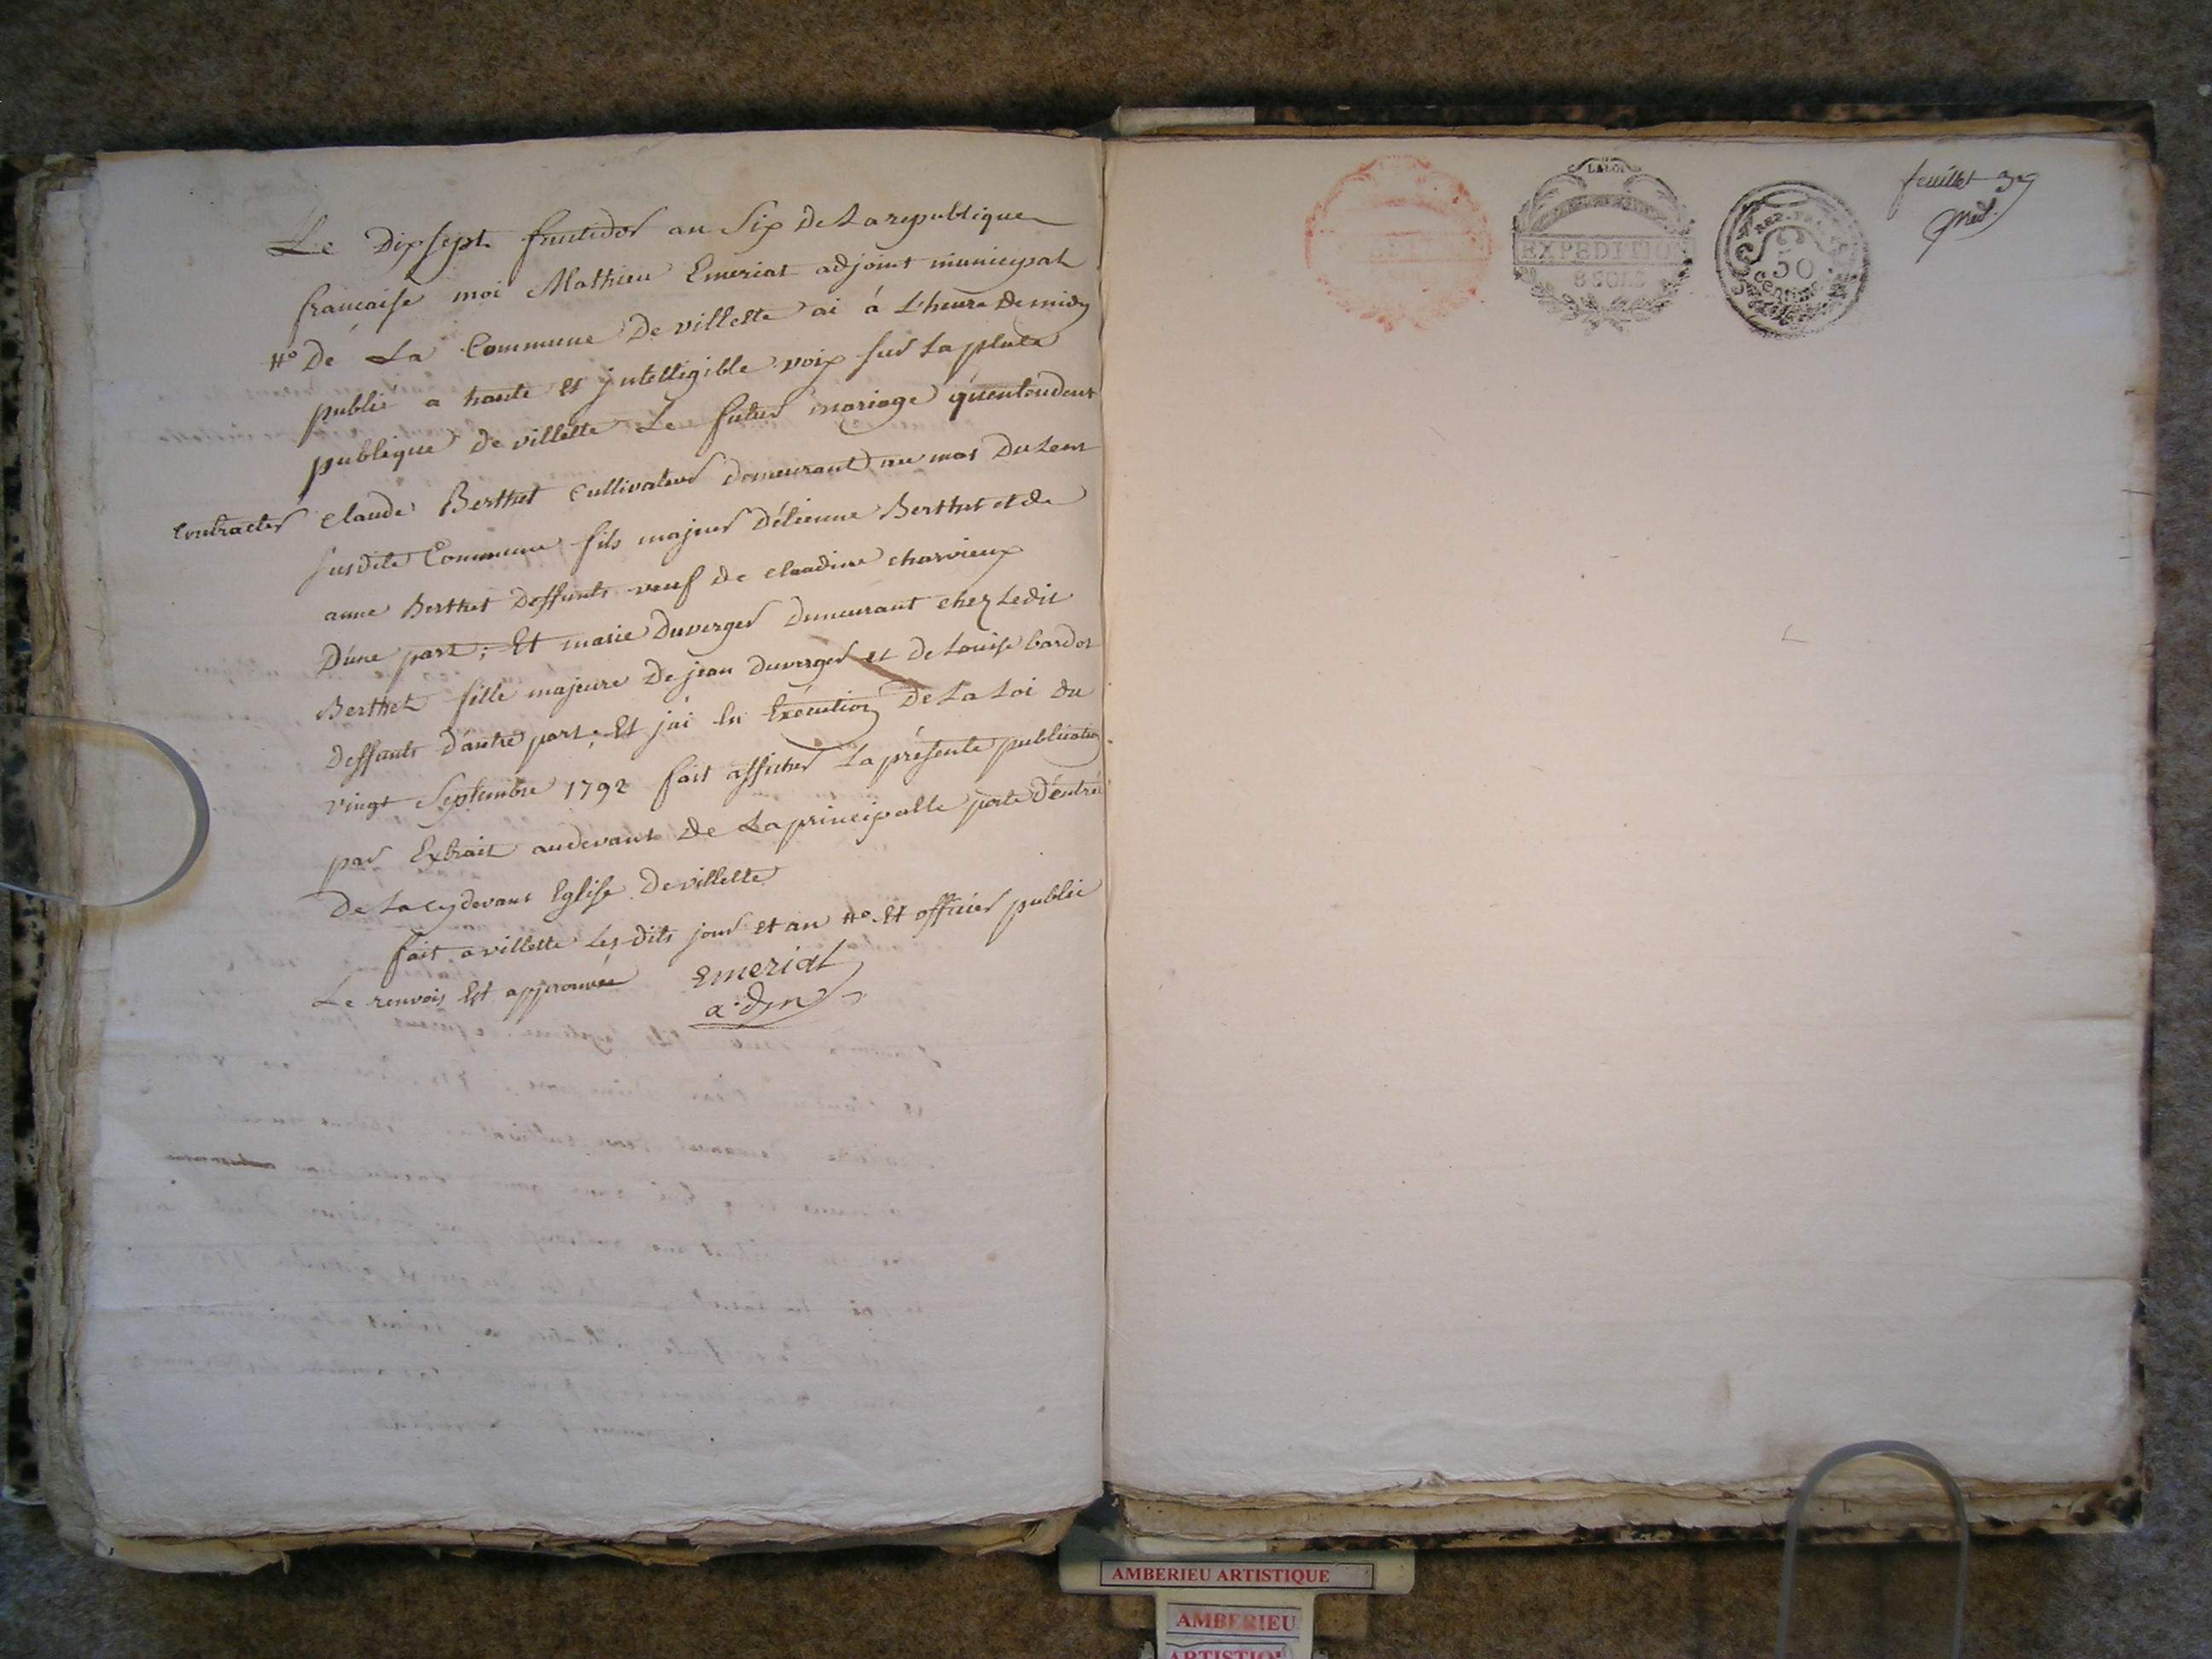 Le Dixsept fructidor an Six De La republique
francaise moi Mathieu Emeriat adjoint municipal
#o De La Commune De villette ai à L'heure De midy
publié a haute et jntelligible voix sur La place
publique De villette Le futur mariage qu'entendent
Contracter Claude Berthet Cultivateur Demeurant au mas Du
susdite Commune fils majeur D'étienne Berthet et de
anne Berthet Deffunts veuf De claudine charvieux
D'une part; Et marie Duverger Demeurant chez Ledit
Berthet fille majeure De jean Duverger et De Louise bardot
Deffunts D'autre part; Et j'ai En Exécution De La Loi du
vingt Septembre 1792 fait afficher La présente publication
par Extrait audevant De La principalle porte D'entrée
De La cydevant Eglise De villette
fait a villette Les dits jour et an #o Et officier public
Le renvois Est approuvée Emeriat
a·djn
LA LOI
EXPEDITION
8 SOLS
REP. FRA.
50
Centimes
feuillet
AMBERIEU ARTISTIQUE
AMBERIEU
ARTISTIQUE